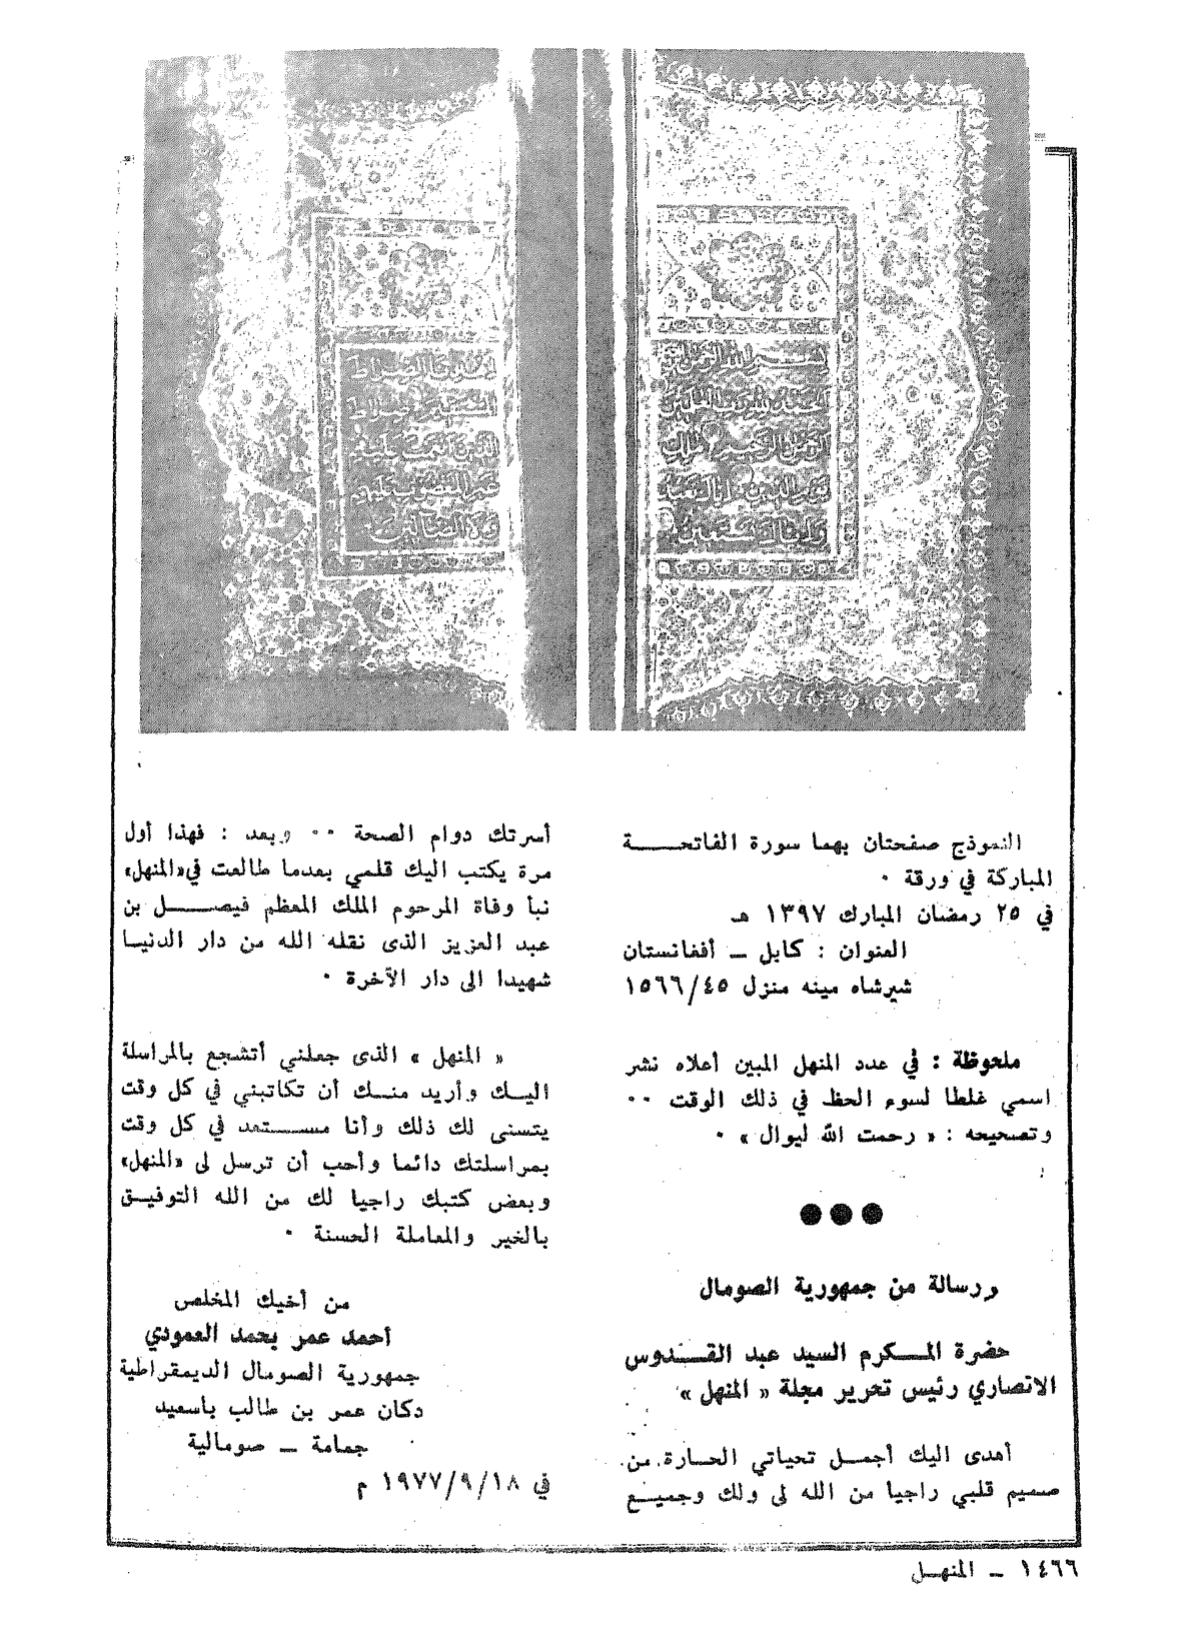 بسم الله الرحمن الرحيم
الحمد لله رب العالمين
الرحمن الرحيم مالك
يوم الدين اياك نعبد
واياك نستعين
اهدنا الصراط
المستقيم صراط
الذين انعمت عليهم
غير المغضوب عليهم
ولا الضالين
النموذج صفحتان بهما سورة الفاتحـــــة
المباركة في ورقة ٠
في ٢٥ رمضان المبارك ١٣٩٧ هـ
العنوان : كابل ــ أفغانستان
شيرشاه مينه منزل ١٥٦٦/٤٥
ملحوظة : في عدد المنهل المبين أعلاه نشر
اسمي غلطا لسوء الحظ في ذلك الوقت ٠٠
وتصحيحه : « رحمت الله ليوال » ٠
●●●
ورسالة من جمهورية الصومال
حضرة المــكرم السيد عبد القــدوس
الانصاري رئيس تحرير مجلة « المنهل »
أهدى اليك أجمــل تحياتي الحــارة من
صميم قلبي راجيا من الله لى ولك وجميــع
أسرتك دوام الصحة ٠٠ وبعد : فهذا أول
مرة يكتب اليك قلمي بعدما طالعت في«المنهل»
نبأ وفاة المرحوم الملك المعظم فيصــــل بن
عبد العزيز الذى نقله الله من دار الدنيــا
شهيدا الى دار الآخرة ٠
« المنهل » الذى جعلني أتشجع بالمراسلة
اليــك وأريد منــك أن تكاتبني في كل وقت
يتسنى لك ذلك وأنا مســـتعد في كل وقت
بمراسلتك دائما وأحب أن ترسل لى «المنهل»
وبعض كتبك راجيا لك من الله التوفيــق
بالخير والمعاملة الحسنة ٠
من أخيك المخلص
أحمد عمر بحمد العمودي
جمهورية الصومال الديمقراطية
دكان عمر بن طالب باسعيد
جمامة ــ صومالية
في ١٩٧٧/٩/١٨ م
١٤٦٦ ــ المنهــل